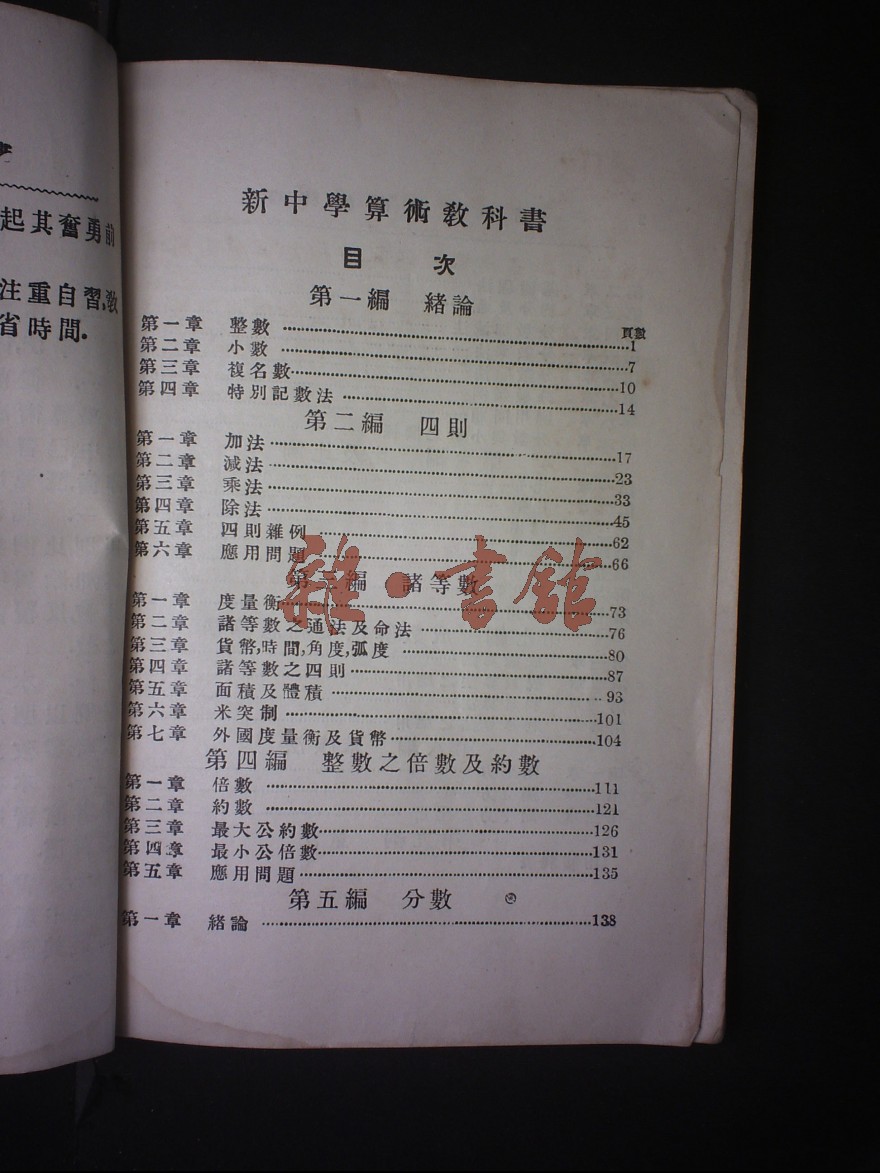 起其奮勇前
注重自習,教
省時間.
新中學算術教科書
目 次
第一編 緒論
頁數
第一章 整數 1
第二章 小數 7
第三章 複名數 10
第四章 特別記數法 14
第二編 四則
第一章 加法 17
第二章 減法 23
第三章 乘法 33
第四章 除法 45
第五章 四則雜例 62
第六章 應用問題 66
第三編 諸等數
第一章 度量衡 73
第二章 諸等數之通法及命法 76
第三章 貨幣,時間,角度,弧度 80
第四章 諸等數之四則 87
第五章 面積及體積 93
第六章 米突制 101
第七章 外國度量衡及貨幣 104
第四編 整數之倍數及約數
第一章 倍數 111
第二章 約數 121
第三章 最大公約數 126
第四章 最小公倍數 131
第五章 應用問題 135
第五編 分數
第一章 緒論 138
雜·書館